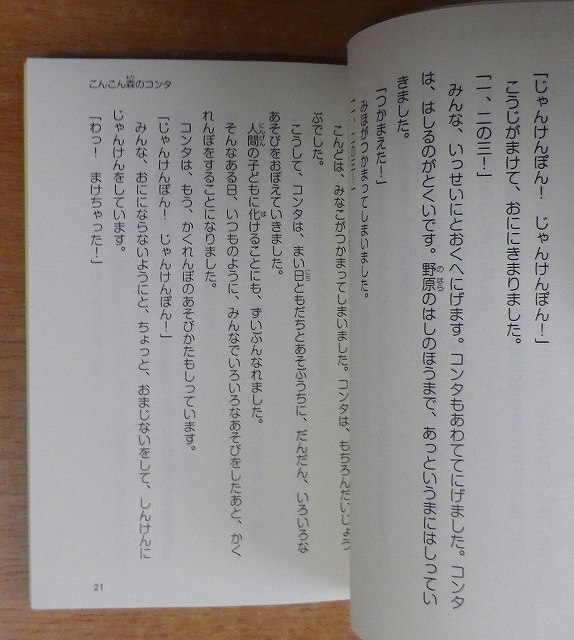 「じゃんけんぽん！　じゃんけんぽん！」
こうじがまけて、おににきまりました。
「一、二の三！」
みんな、いっせいにとおくへにげます。コンタもあわててにげました。コンタ
は、はしるのがとくいです。野原のはしのほうまで、あっというまにはしってい
きました。
「つかまえた！」
みほがつかまってしまいました。
こんどは、みなこがつかまってしまいました。コンタは、もちろんだいじょう
ぶでした。
こうして、コンタは、まい日ともだちとあそぶうちに、だんだん、いろいろな
あそびをおぼえていきました。
人間の子どもに化けることにも、ずいぶんなれました。
そんなある日、いつものように、みんなでいろいろなあそびをしたあと、かく
れんぼをすることになりました。
コンタは、もう、かくれんぼのあそびかたもしっています。
「じゃんけんぽん！　じゃんけんぽん！」
みんな、おににならないようにと、ちょっと、おまじないをして、しんけんに
じゃんけんをしています。
「わっ！　まけちゃった！」
こんこん森のコンタ
21